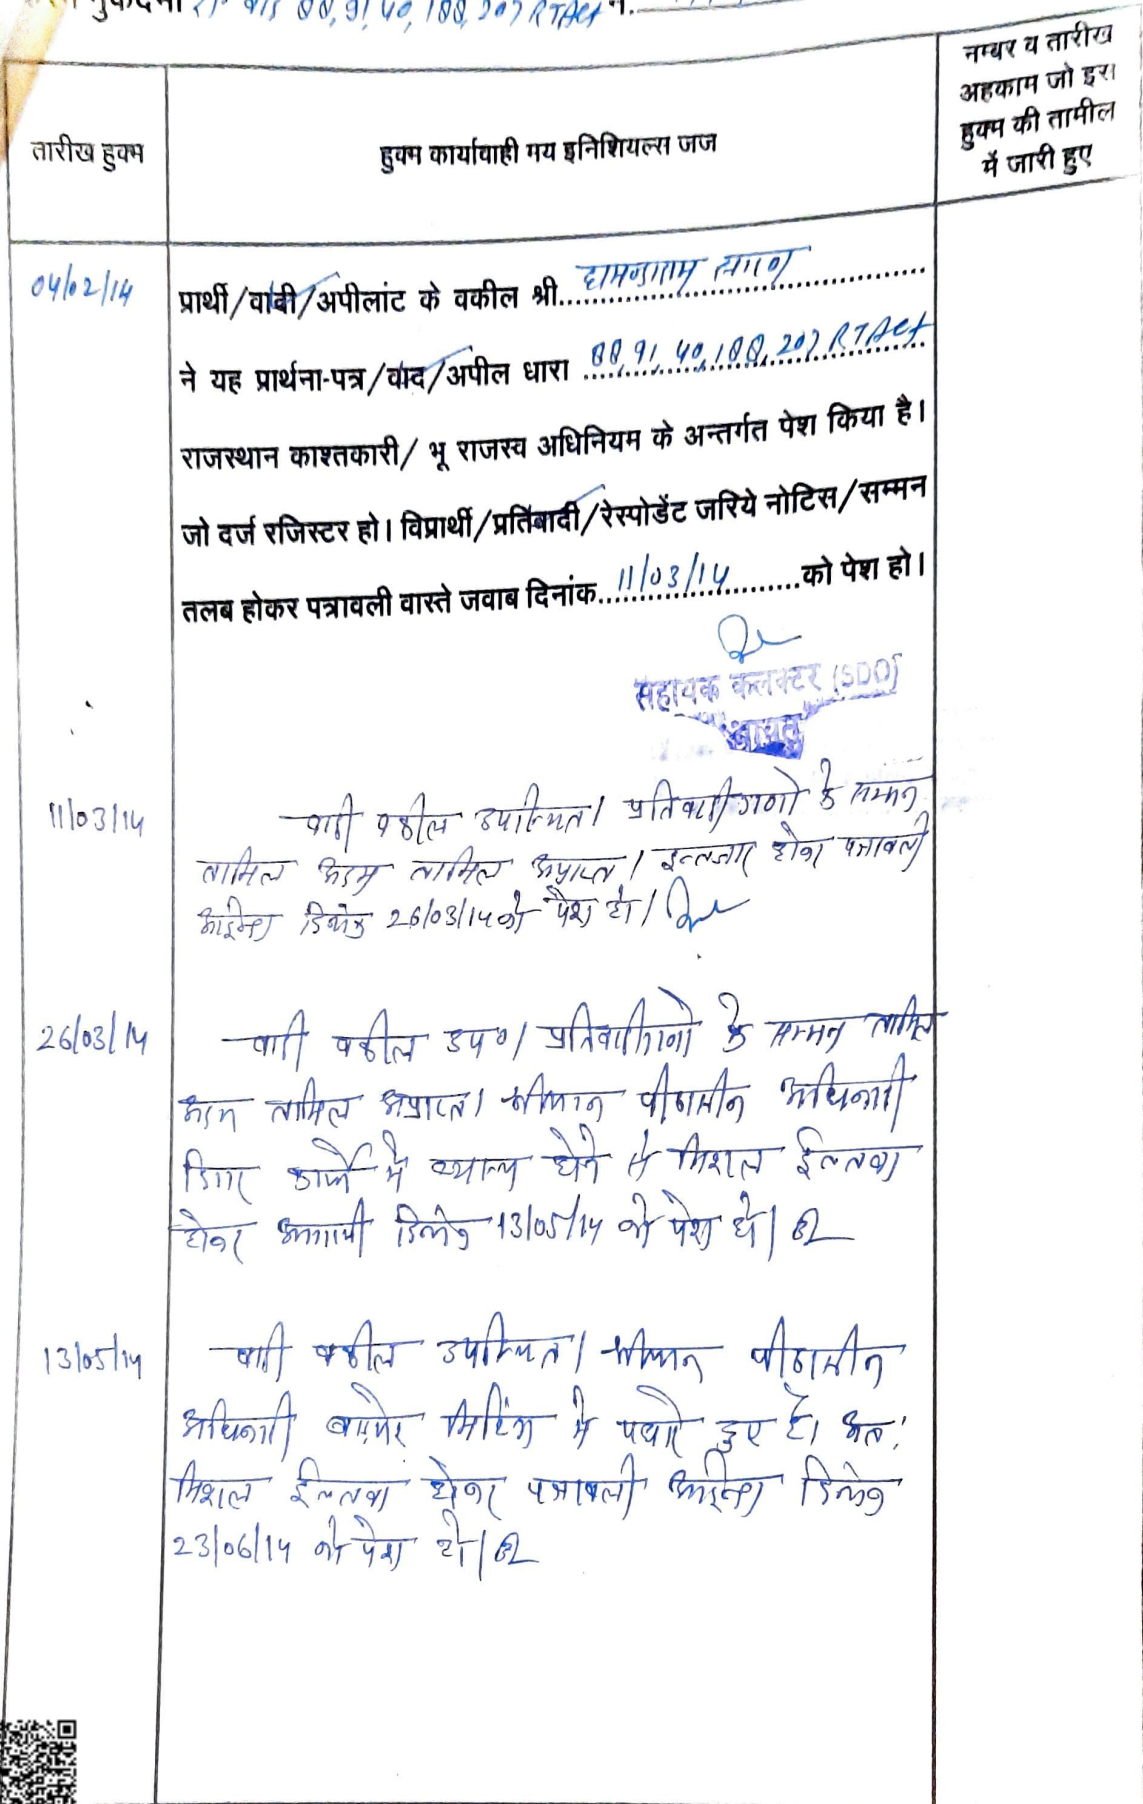 88,91,40,188,207 RTAct न.
तारीख हुक्म
हुक्म कार्यावाही मय इनिशियल्स जज
नम्बर व तारीख
अहकाम जो इस
हुक्म की तामील
में जारी हुए
04/02/14
प्रार्थी/वादी/अपीलांट के वकील श्री.....................
ने यह प्रार्थना-पत्र/वाद/अपील धारा 88,91,40,188,207 RTAct
राजस्थान काश्तकारी/ भू राजस्व अधिनियम के अन्तर्गत पेश किया है।
जो दर्ज रजिस्टर हो। विप्रार्थी/प्रतिवादी/रेस्पोडेंट जरिये नोटिस/सम्मन
तलब होकर पत्रावली वास्ते जवाब दिनांक 11/03/14 को पेश हो।
सहायक कलक्टर (SDO)
11/03/14
वादी वकील उपस्थित। प्रतिवादीगणो के सम्मन
तामिल अदम तामिल अप्राप्त। इन्तजार होकर पत्रावली
आईन्दा दिनांक 26/03/14 को पेश हो।
26/03/14
वादी वकील उप०। प्रतिवादीगणो के सम्मन तामिल
अदम तामिल अप्राप्त। श्रीमान पीठासीन अधिकारी
दिगर कार्यो मे व्यस्त होने से मिशल ईल्तवा
होकर आगामी दिनांक 13/05/14 को पेश हो।
13/05/14
वादी वकील उपस्थित। श्रीमान पीठासीन
अधिकारी बाड़मेर मिटिंग मे पधारे हुए है। अतः
मिशल ईल्तवा होकर पत्रावली आईन्दा दिनांक
23/06/14 को पेश हो।